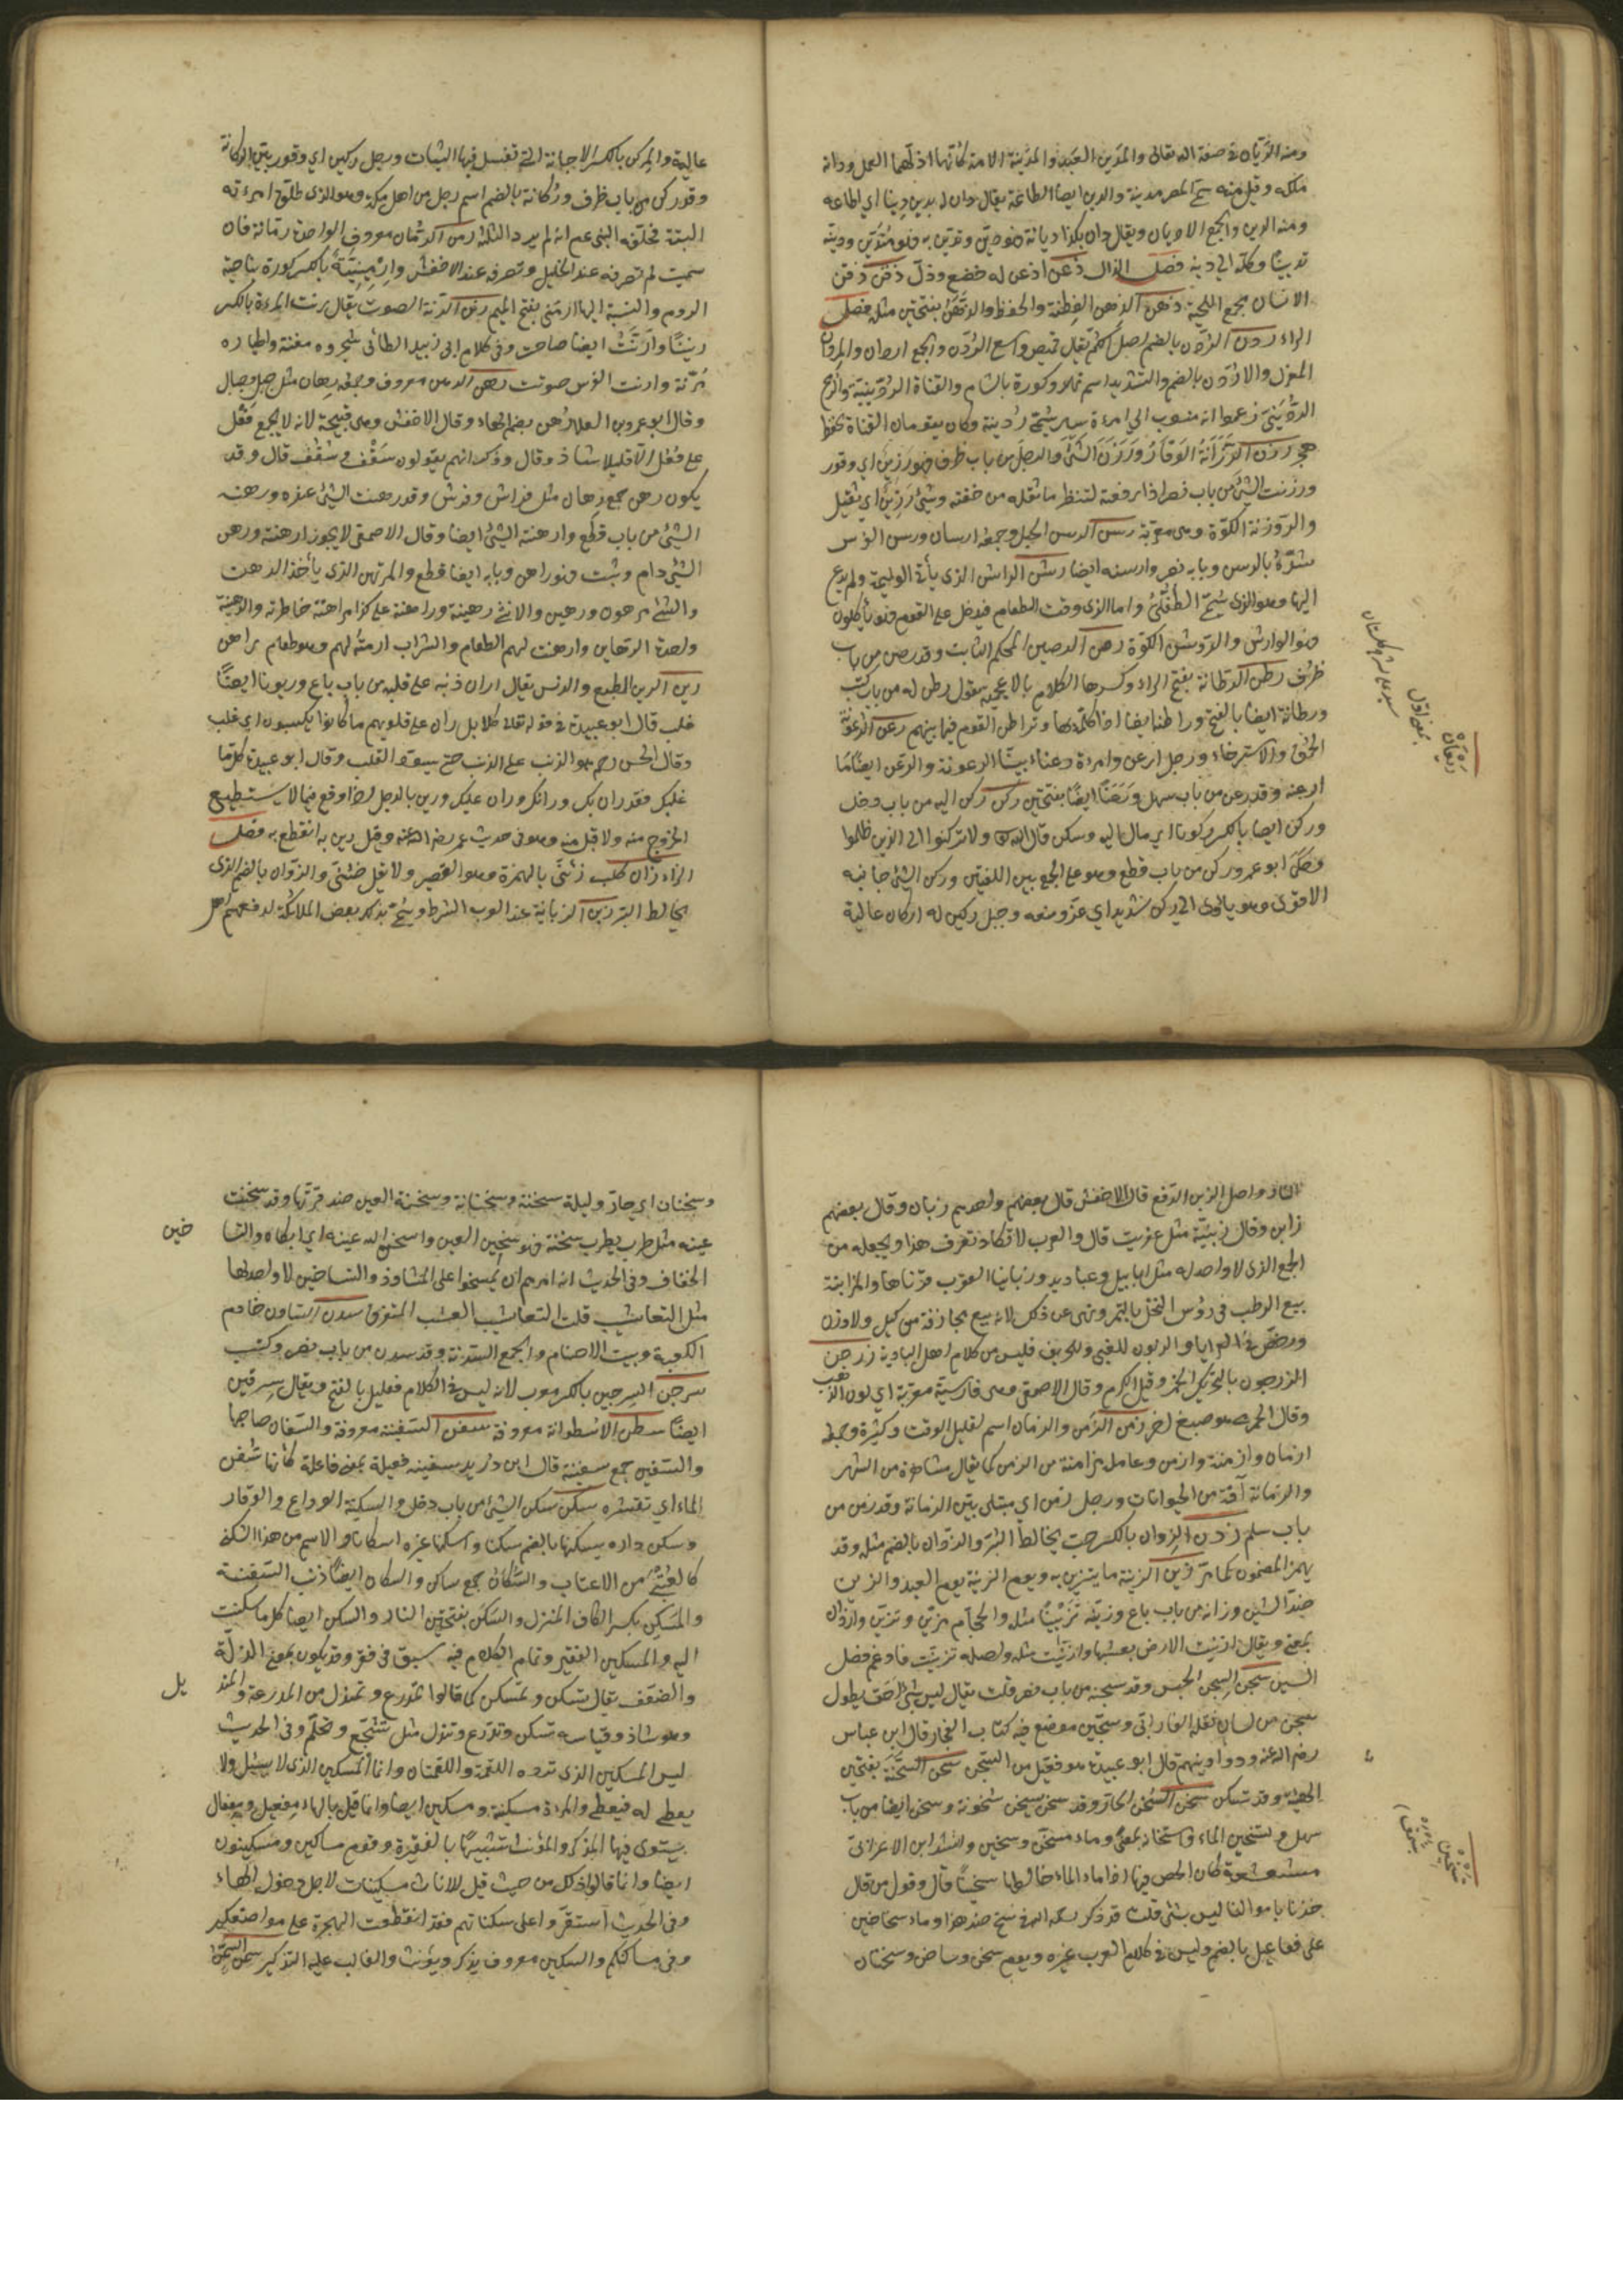 ومنه الديان في صفة الله تعالى والمدين العبد والمدينة الامة كأنها اذلهما العمل ودانه
ملكه وقيل منه سمي المصر مدينة والدين ايضا الطاعة يقال دان له يدين دينا اي اطاعه
ومنه الدين والجمع الاديان ويقال دان بكذا ديانة فهو دين وتدين به فهو متدين ودينه
تديينا وكله الى دينه فصل الذال ذعن اذعن له خضع وذل ذقن ذقن
الانسان مجمع اللحية ذهن الذهن الفطنة والحفظ والذهن بفتحتين مثله فصل
الراء ردن الردن بالضم اصل الكم يقال قميص واسع الردن والجمع اردان والمردن
المغزل والاردن بالضم والتشديد اسم نهر وكورة بالشام والقناة الردينية والرمح
الرديني زعموا انه منسوب الى امرءة تسمى ردينة وكان يقومان القناة بخط
هجر رزن الرزانة الوقار ورزن الشئ والرجل من باب ظرف فهو رزين اي وقور
ورزنت الشئ من باب نصر اذا رفعته لتنظر ما ثقله من خفته وشئ رزين اي ثقيل
والروزنة الكوة وهي معربة رسن الرسن الحبل وجمعه ارسان ورسن الفرس
شده بالرسن وبابه نصر وارسنه ايضا رشن الراشن الذي يأتي الوليمة ولم يدع
اليها وهو الذي يسمى الطفيلي واما الذي وقت الطعام فيدخل على القوم وهم يأكلون
فهو الوارش والروشن الكوة رصن الرصين المحكم الثابت وقد رصن من باب
ظرف رطن الرطانة بفتح الراء وكسرها الكلام بالاعجمية يقول رطن له من باب كتب
ورطانة ايضا بالفتح وراطنه ايضا اذا كلمه بها وتراطن القوم فيما بينهم رعن الرعونة
الحمق والاسترخاء ورجل ارعن وامرءة رعناء بينا الرعونة والرعن ايضا
ارعنه وقد رعن من باب سهل ورعنا ايضا بفتحتين ركن ركن اليه من باب دخل
وركن ايضا بالكسر ركونا اي مال اليه وسكن قال الله ولا تركنوا الى الذين ظلموا
وحكى ابو عمرو ركن من باب قطع وهو على الجمع بين اللغتين وركن الشئ جانبه
الاقوى وهو يأوى الى ركن شديد اي عز ومنعه وجبل ركين له اركان عالية
رعان
بمعنى اول
عالية والمركن بالكسر الاجانة التي تغسل فيها الثياب ورجل ركين اي وقور بين الركانة
وقد ركن من باب ظرف وركانة بالضم اسم رجل من اهل مكة وهو الذي طلق امرءته
البتة فحلفه النبي عم انه لم يرد الثلث رمن الرمان معروف الواحدة رمانة فان
سميت لم تصرفه عند الخليل وتصرفه عند الاخفش وارمينية بالكسر كورة بناحية
الروم والنسبة اليها ارمني بفتح الميم رنن الرنة الصوت يقال رنت المرءة بالكسر
رنينا وارنت ايضا صاحت وفي كلام ابي زبيد الطائي شجره مغنة واطياره
مرنة وارنت القوس صوتت رهن الرهن معروف وجمعه رهان مثل حبل وحبال
وقال ابو عمرو بن العلاء رهن بضم الهاء وقال الاخفش وهي قبيحة لانه لا يجمع فعل
على فعل الا قليلا شاذ وقال وذكر انهم يقولون سقف وسقف قال وقد
يكون رهن جمع رهان مثل فراش وفرش وقد رهنت الشئ عنده ورهنه
الشئ من باب قطع وارهنته الشئ ايضا وقال الاصمعي لا يجوز ارهنته ورهن
الشئ دام وثبت فهو راهن وبابه ايضا قطع والمرتهن الذي يأخذ الرهن
والشئ مرهون ورهين والانثى رهينة وراهنه على كذا مراهنة خاطره والرهينة
واحدة الرهاين وارهنت لهم الطعام والشراب ادمته لهم وهو طعام راهن
رين الرين الطبع والدنس يقال ران ذنبه على قلبه من باب باع وريونا ايضا
غلب قال ابو عبيدة في قوله تعالى كلا بل ران على قلوبهم ما كانوا يكسبون اي غلب
وقال الحسن رحمه هو الذنب على الذنب حتى يسود القلب وقال ابو عبيدة كل ما
غلبك فقد ران بك ورانك وران عليك ورين بالرجل اذا وقع فيما لا يستطيع
الخروج منه ولا قبل منه وهو في حديث عمر رضي الله عنه وقيل رين به انقطع به فصل
الزاء زأن كلب زئني بالهمزة وهو القصير ولا تقل صيني والزوان بالضم الذي
يخالط البر زبن الزبانية عند العرب الشرط وسمي بذلك بعض الملائكة لدفعهم اهل
النار واصل الزبن الدفع قال الاخفش قال بعضهم واحدهم زبان وقال بعضهم
زابن وقال زبنية مثل عفرية قال والعرب لا تكاد تعرف هذا ويجعله من
الجمع الذي لا واحد له مثل ابابيل وعباديد وزبانيا العقرب قرناها والمزابنة
بيع الرطب في رؤس النخل بالتمر ونهى عن ذلك لانه بيع مجازفة من كيل ولا وزن
ورخص في العرايا والزبون للغبي وللحريف فليس من كلام اهل البادية زرجن
الزرجون بالتحريك الخمر وقيل الكرم وقال الاصمعي وهي فارسية معربة اي لون الذهب
وقال الجرمي هو صبغ احمر زمن الزمن والزمان اسم لقليل الوقت وكثيره وجمعه
ازمان وازمنة وازمن وعامله مزامنة من الزمن كما يقال مشاهرة من الشهر
والزمانة آفة من الحيوانات ورجل زمن اي مبتلى بين الزمانة وقد زمن من
باب سلم زون الزوان بالكسر حب يخالط البر والزوان بالضم مثله وقد
يهمز المضموم كما مر زين الزينة ما يتزين به ويوم الزينة يوم العيد والزين
ضد الشين وزانه من باب باع وزينه تزيينا مثله والحجام مزين وتزين وازدان
بمعنى ويقال ازينت الارض بعشبها وازينت مثله واصله تزينت فادغم فصل
السين سجن السجن الحبس وقد سجنه من باب نصر قلت يقال ليس شئ احق بطول
سجن من لسان نقله الفارابي وسجين موضع فيه كتاب الفجار قال ابن عباس
رضي الله عنه ودواوينهم قال ابو عبيدة هو فعيل من السجن سحن السحنة بفتحتين
الهيئة وقد تسكن سخن السخن الحار وقد سخن يسخن سخونة وسخن ايضا من باب
سهل وتسخين الماء واسخانه بمعنى وماء مسخن وسخين وانشد ابن الاعرابي
مشعشعة كأن الحص فيها اذا ما الماء خالطها سخينا قال وقول من قال
جدنا باموالنا ليس بشئ قلت قد ذكر رحمه الله في سخ ضد هذا وماء سخاخين
على فعاعيل بالضم وليس في كلام العرب غيره ويوم سخن وساخن وسخنان
سخين
وسخنان اي حار وليلة سخنة وسخنانة وسخنة العين ضد قرتها وقد سخنت
عينه مثل طرب يطرب سخنة فهو سخين العين واسخن الله عينه اي ابكاه والتسا
خين
الخفاف وفي الحديث انه امرهم ان يمسحوا على المشاوذ والتساخين لا واحد لها
مثل التعاشيب قلت التعاشيب العشب المتفرق سدن السادن خادم
الكعبة وبيت الاصنام والجمع السدنة وقد سدن من باب نصر وكتب
سرجن السرجين بالكسر معرب لانه ليس في الكلام فعليل بالفتح ويقال سرقين
ايضا سطن الاسطوانة معروفة سفن السفينة معروفة والسفان صاحبها
والسفين جمع سفينة قال ابن دريد سفينة فعيلة بمعنى فاعلة كأنها تسفن
الماء اي تقشره سكن سكن الشئ من باب دخل والسكينة الوداع والوقار
وسكن داره يسكنها بالضم سكنا واسكنها غيره اسكانا والاسم من هذا السكنى
كالعتبى من الاعتاب والسكان جمع ساكن والسكان ايضا ذنب السفينة
والمسكن بكسر الكاف المنزل والسكن بفتحتين النار والسكن ايضا كل ما سكنت
اليه والمسكين الفقير وتمام الكلام فيه سبق في فقر وقد يكون بمعنى الذلة
والضعف يقال تسكن وتمسكن كما قالوا تمدرع وتمندل من المدرعة والمند
يل
وهو شاذ وقياسه تسكن وتدرع وتندل مثل تشجع وتحلم وفي الحديث
ليس المسكين الذي ترده اللقمة واللقمتان وانما المسكين الذي لا يسئل ولا
يعطى له فيعطى والمرءة مسكينة ومسكين ايضا وانما قيل بالهاء مفعيل ومفعال
يستوى فيها المذكر والمؤنث تشبيها بالفقيرة وقوم مساكين ومسكينون
ايضا وانما قالوا ذلك من حيث قيل للاناث مسكينات لاجل دخول الهاء
وفي الحديث استقروا على سكناتكم فقد انقطعت الهجرة على مواضعكم
وفي مساكنكم والسكين معروف يذكر ويؤنث والغالب عليه التذكير سمن السمن